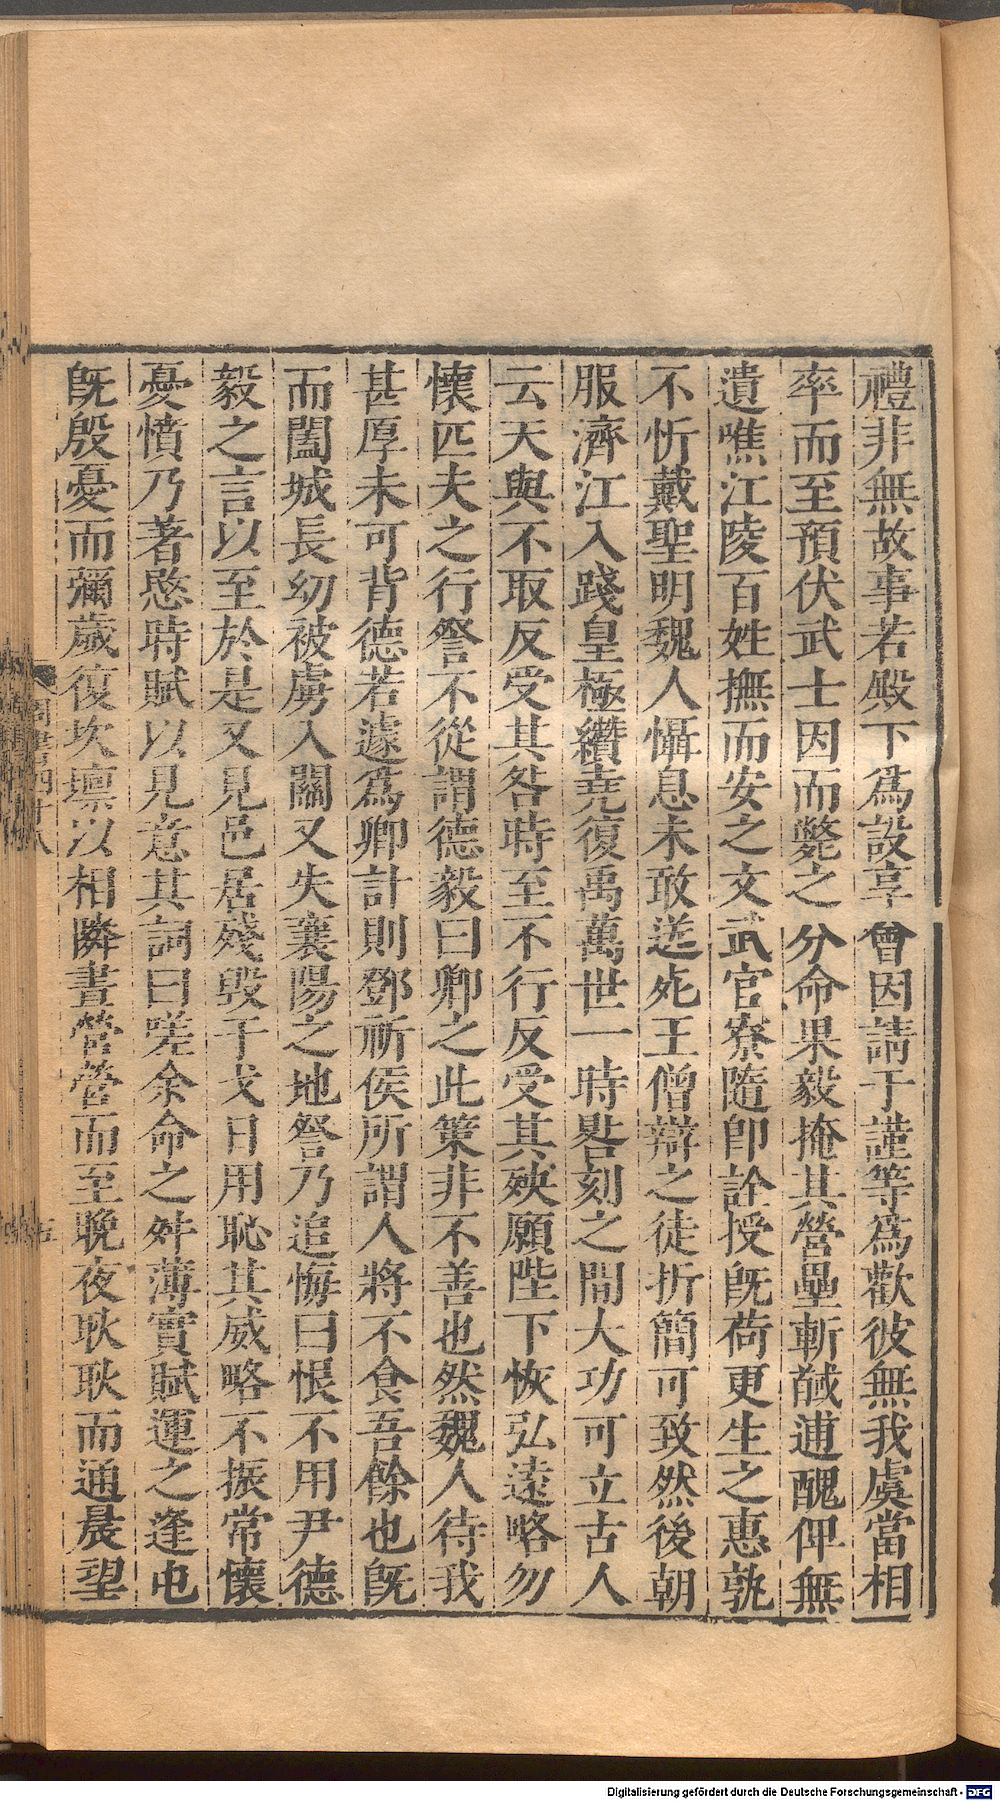 禮非無故事若殿下爲設享會因請于謹等爲歡彼無我虞當相
率而至預伏武士因而斃之分命果毅掩其營壘斬馘逋醜俾無
遺噍江陵百姓撫而安之文武官寮隨卽詮授旣荷更生之惠孰
不忻戴聖明魏人懾息未敢送死王僧辯之徒折簡可致然後朝
服濟江入踐皇極纘堯復禹萬世一時晷刻之間大功可立古人
云天與不取反受其咎時至不行反受其殃願陛下恢弘遠略勿
懷匹夫之行詧不從謂德毅曰卿之此策非不善也然魏人待我
甚厚未可背德若遽爲卿計則鄧祈侯所謂人將不食吾餘也旣
而闔城長幼被虜入關又失襄陽之地詧乃追悔曰恨不用尹德
毅之言以至於是又見邑居殘毀干戈日用恥其威略不振常懷
憂憤乃著愍時賦以見意其詞曰嗟余命之舛薄實賦運之逢屯
旣殷憂而彌歲復坎壈以相隣晝營營而至晚夜耿耿而通晨望
周書四十八
五
Digitalisierung gefördert durch die Deutsche Forschungsgemeinschaft - DFG